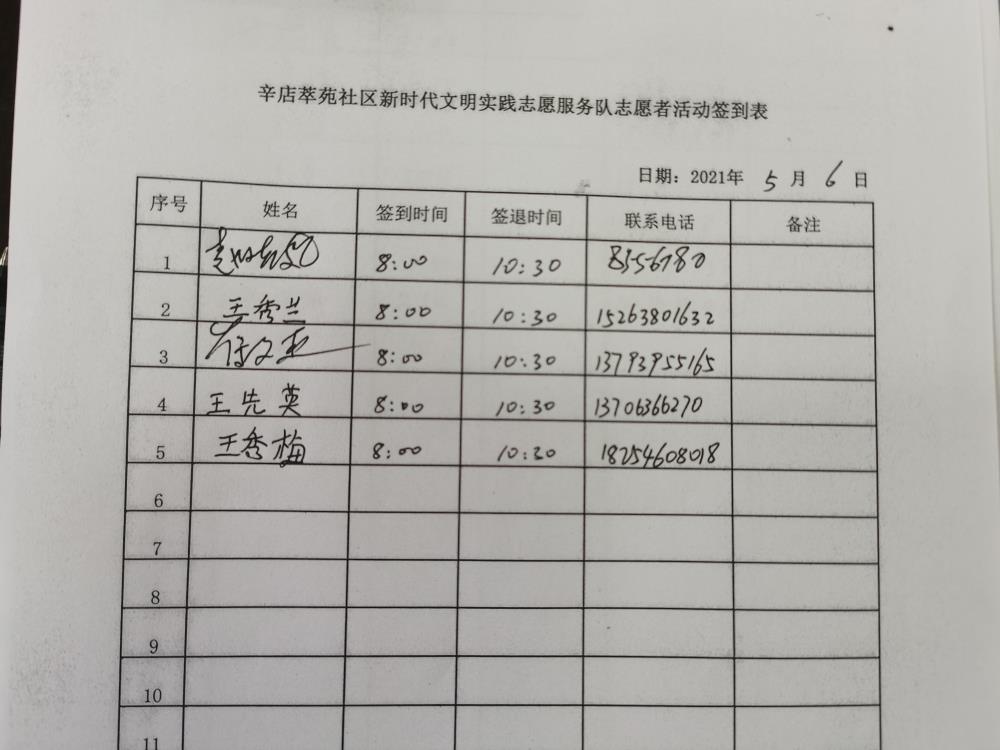 辛店萃苑社区新时代文明实践志愿服务队志愿者活动签到表
日期：2021年 5 月 6 日
序号 姓名 签到时间 签退时间 联系电话 备注
1 8:00 10:30 8556780
2 王秀兰 8:00 10:30 15263801632
3 8:00 10:30 13793955165
4 王先英 8:00 10:30 13706366270
5 王秀梅 8:00 10:30 18254608018
6
7
8
9
10
11